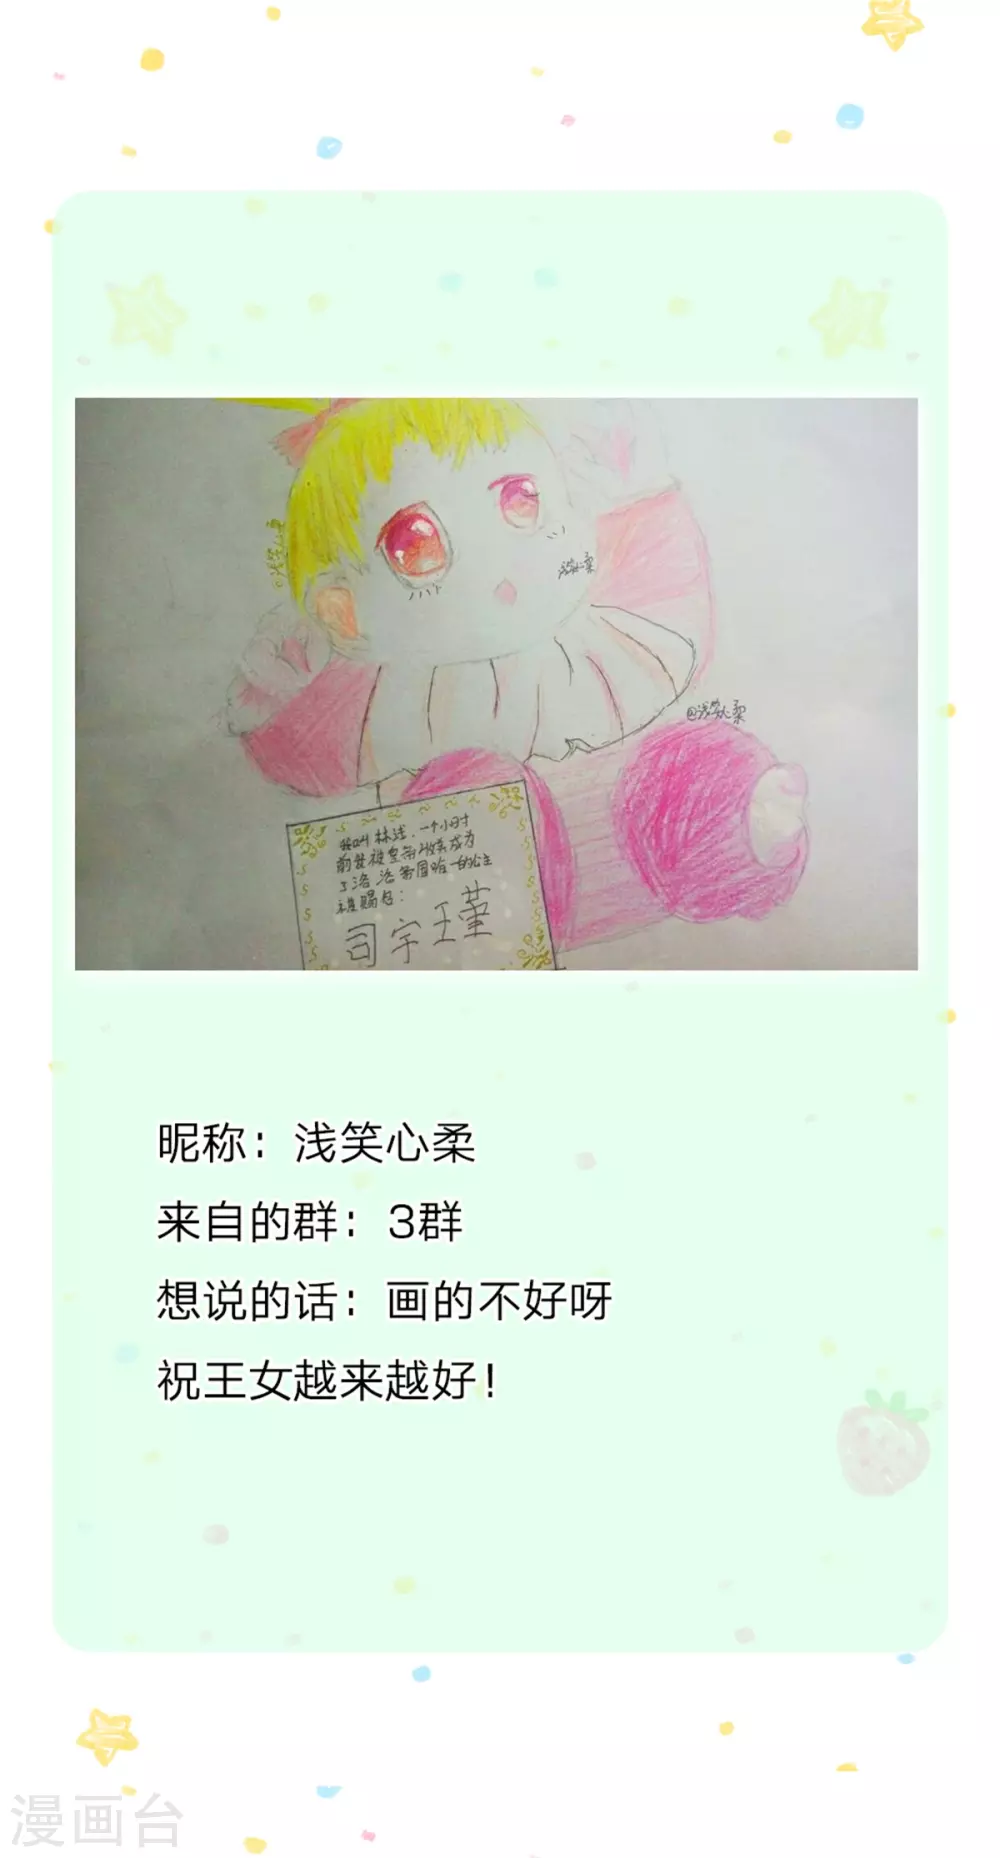 @浅笑心柔
浅笑心柔
@浅笑心柔
我叫林浅,一个小时
前我被皇帝收养成为
了洛洛帝国唯一的公主
被赐名:
司宇瑾
昵称:浅笑心柔
来自的群:3群
想说的话:画的不好呀
祝王女越来越好!
漫画台